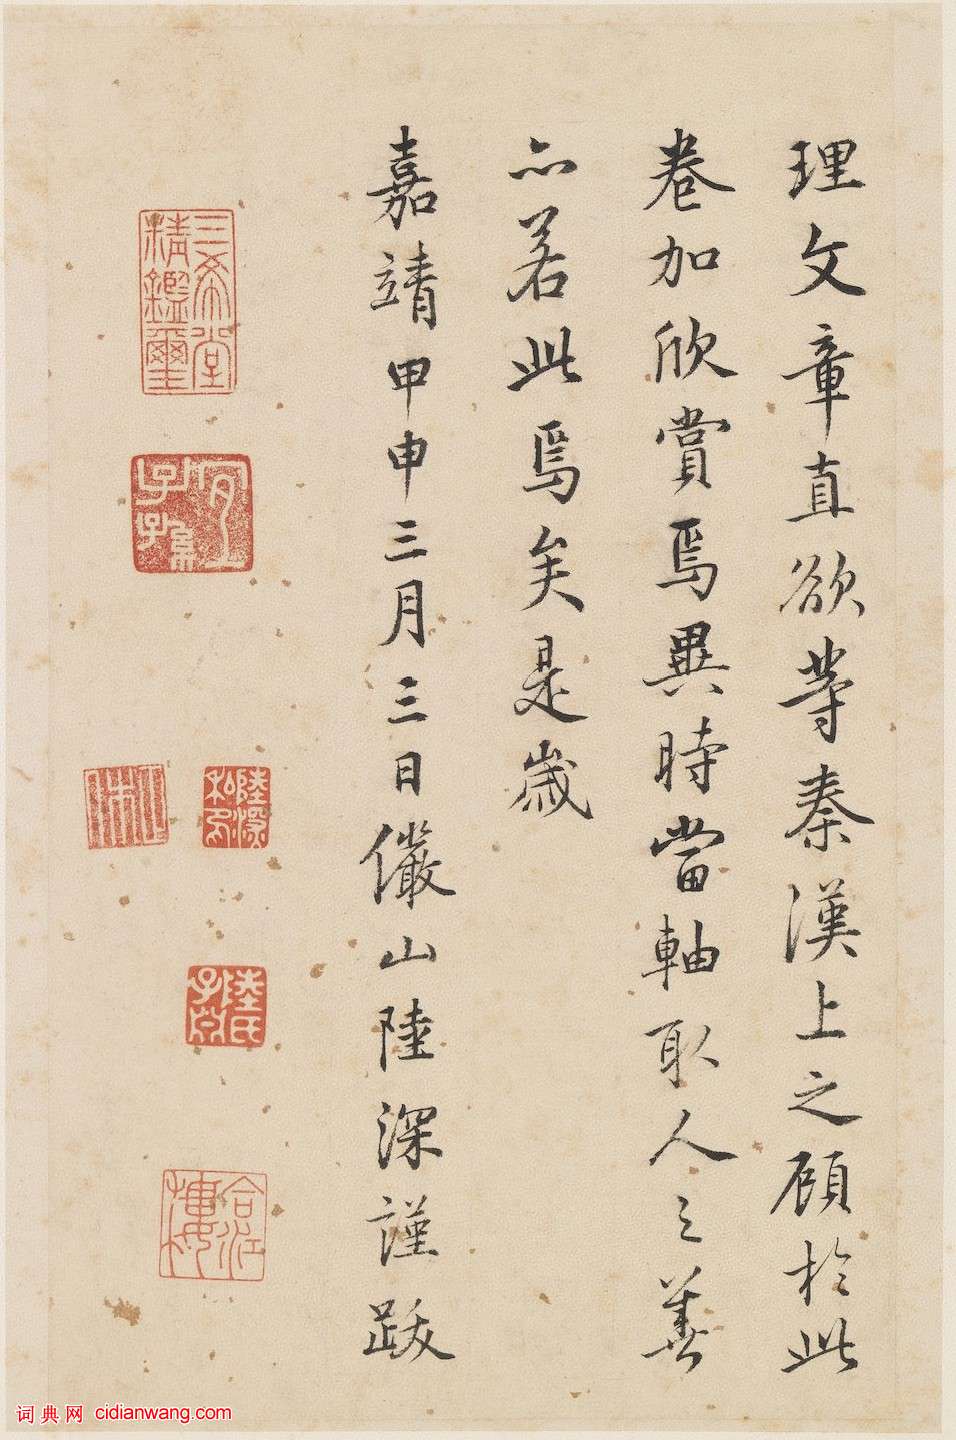 理文章直欲等秦漢上之顧於此
卷加欣賞焉異時當軸取人之善
亦若此焉矣是歲
嘉靖甲申三月三日儼山陸深謹跋
三希堂
精鑑璽
宜子孫
陸氏
子淵
词典网 cidianwang.com